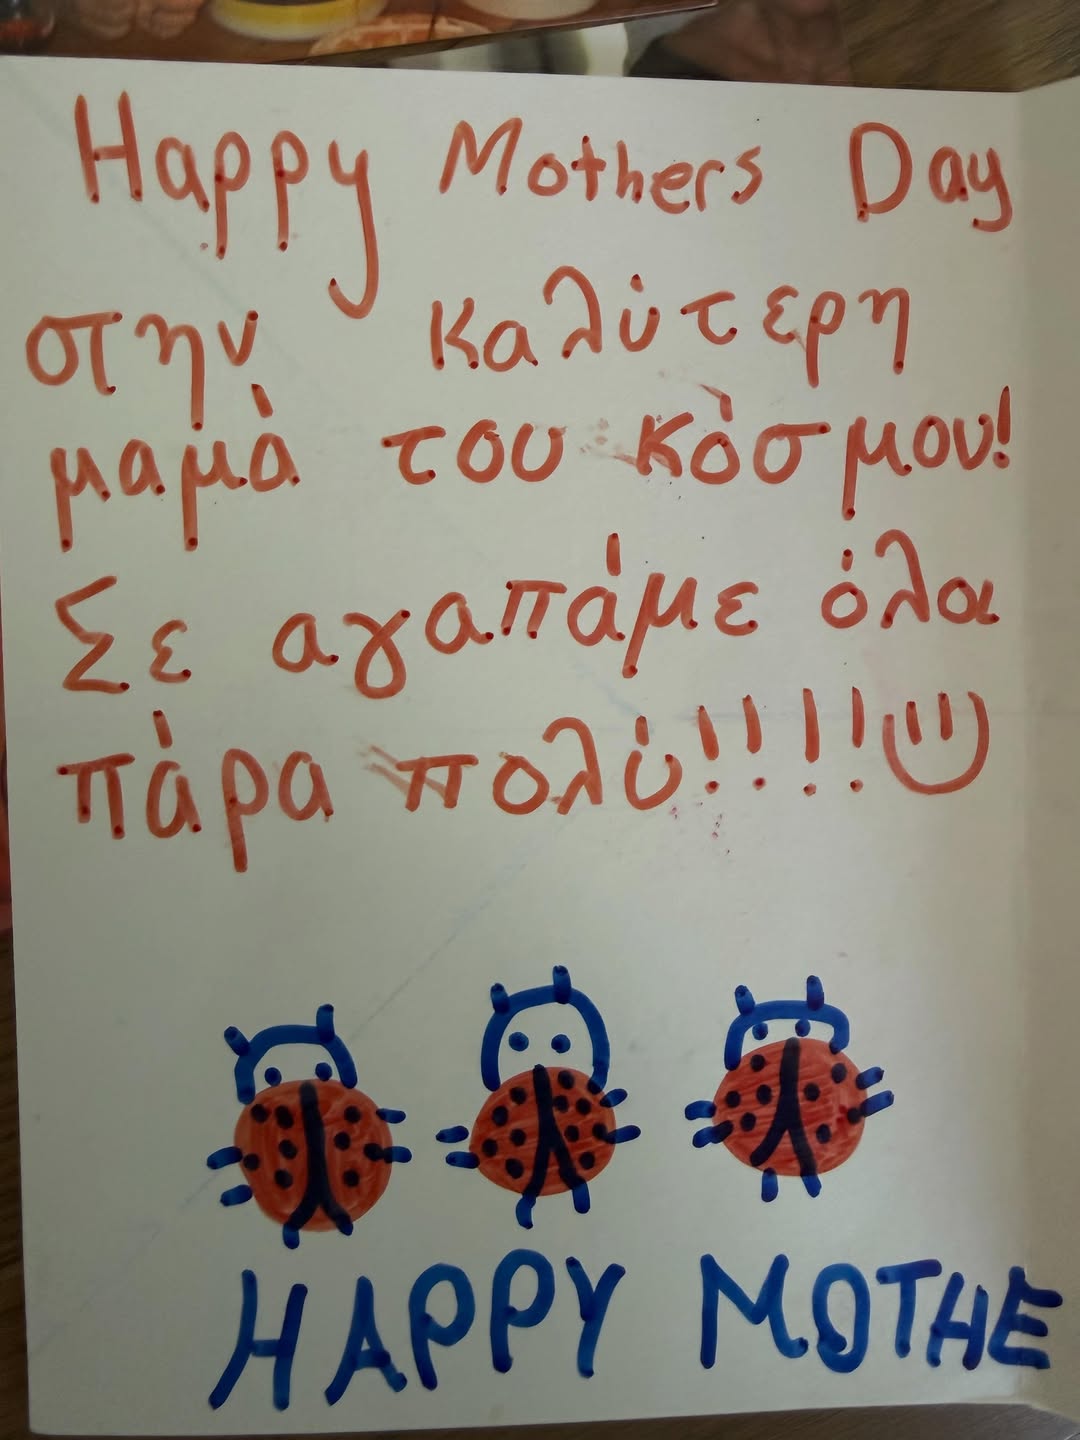 Happy Mothers Day
στην καλύτερη
μαμά του κόσμου!
Σε αγαπάμε όλοι
πάρα πολύ!!!!
HAPPY MOTHE